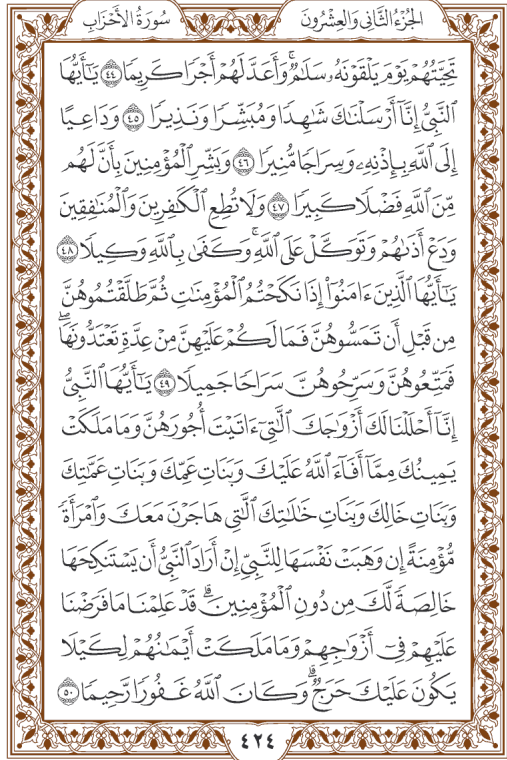 الجُزْءُ الثَّانِي وَالعِشْرُونَ سُورَةُ الأَحْزَاب
تَحِيَّتُهُمْ يَوْمَ يَلْقَوْنَهُۥ سَلَٰمٌۚ وَأَعَدَّ لَهُمْ أَجْرًا كَرِيمًا ٤٤ يَٰٓأَيُّهَا
ٱلنَّبِيُّ إِنَّآ أَرْسَلْنَٰكَ شَٰهِدًا وَمُبَشِّرًا وَنَذِيرًا ٤٥ وَدَاعِيًا
إِلَى ٱللَّهِ بِإِذْنِهِۦ وَسِرَاجًا مُّنِيرًا ٤٦ وَبَشِّرِ ٱلْمُؤْمِنِينَ بِأَنَّ لَهُم
مِّنَ ٱللَّهِ فَضْلًا كَبِيرًا ٤٧ وَلَا تُطِعِ ٱلْكَٰفِرِينَ وَٱلْمُنَٰفِقِينَ
وَدَعْ أَذَىٰهُمْ وَتَوَكَّلْ عَلَى ٱللَّهِۚ وَكَفَىٰ بِٱللَّهِ وَكِيلًا ٤٨
يَٰٓأَيُّهَا ٱلَّذِينَ ءَامَنُوٓا۟ إِذَا نَكَحْتُمُ ٱلْمُؤْمِنَٰتِ ثُمَّ طَلَّقْتُمُوهُنَّ
مِن قَبْلِ أَن تَمَسُّوهُنَّ فَمَا لَكُمْ عَلَيْهِنَّ مِنْ عِدَّةٍ تَعْتَدُّونَهَاۖ
فَمَتِّعُوهُنَّ وَسَرِّحُوهُنَّ سَرَاحًا جَمِيلًا ٤٩ يَٰٓأَيُّهَا ٱلنَّبِيُّ
إِنَّآ أَحْلَلْنَا لَكَ أَزْوَٰجَكَ ٱلَّٰتِيٓ ءَاتَيْتَ أُجُورَهُنَّ وَمَا مَلَكَتْ
يَمِينُكَ مِمَّآ أَفَآءَ ٱللَّهُ عَلَيْكَ وَبَنَاتِ عَمِّكَ وَبَنَاتِ عَمَّٰتِكَ
وَبَنَاتِ خَالِكَ وَبَنَاتِ خَٰلَٰتِكَ ٱلَّٰتِي هَاجَرْنَ مَعَكَ وَٱمْرَأَةً
مُّؤْمِنَةً إِن وَهَبَتْ نَفْسَهَا لِلنَّبِيِّ إِنْ أَرَادَ ٱلنَّبِيُّ أَن يَسْتَنكِحَهَا
خَالِصَةً لَّكَ مِن دُونِ ٱلْمُؤْمِنِينَۗ قَدْ عَلِمْنَا مَا فَرَضْنَا
عَلَيْهِمْ فِيٓ أَزْوَٰجِهِمْ وَمَا مَلَكَتْ أَيْمَٰنُهُمْ لِكَيْلَا
يَكُونَ عَلَيْكَ حَرَجٌۗ وَكَانَ ٱللَّهُ غَفُورًا رَّحِيمًا ٥٠
٤٢٤